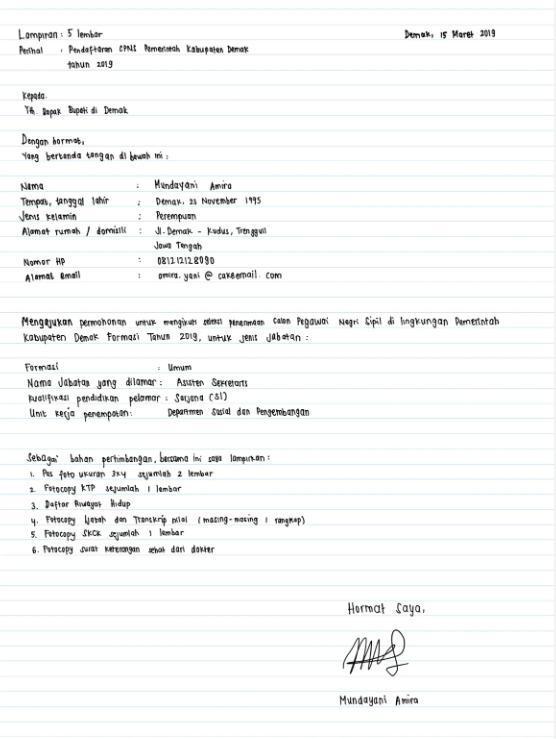 Lampiran : 5 lembar
Demak, 15 Maret 2019
Perihal : Pendaftaran CPNS Pemerintah Kabupaten Demak
tahun 2019
Kepada.
Yth. Bapak Bupati di Demak
Dengan hormat,
Yang bertanda tangan di bawah ini :
Nama : Mundayani Amira
Tempat, tanggal lahir : Demak, 23 November 1995
Jenis Kelamin : Perempuan
Alamat rumah / domisili : Jl. Demak - Kudus, Trengguli
Jawa Tengah
Nomor HP : 081212128090
Alamat email : amira.yani @ cakeemail. com
Mengajukan permohonan untuk mengikuti seleksi penerimaan Calon Pegawai Negri Sipil di lingkungan Pemerintah
Kabupaten Demak Formasi Tahun 2019, untuk jenis jabatan :
Formasi : Umum
Nama Jabatan yang dilamar : Asisten Sekretaris
Kualifikasi pendidikan pelamar : Sarjana (S1)
Unit kerja penempatan: Departmen Sosial dan Pengembangan
Sebagai bahan pertimbangan, bersama ini saya lampirkan :
1. Pas foto ukuran 3x4 sejumlah 2 lembar
2. Fotocopy KTP sejumlah 1 lembar
3. Daftar Riwayat Hidup
4. Fotocopy Ijazah dan Transkrip nilai (masing-masing 1 rangkap)
5. Fotocopy SKCK sejumlah 1 lembar
6. Fotocopy surat keterangan sehat dari dokter
Hormat Saya,
Mundayani Amira